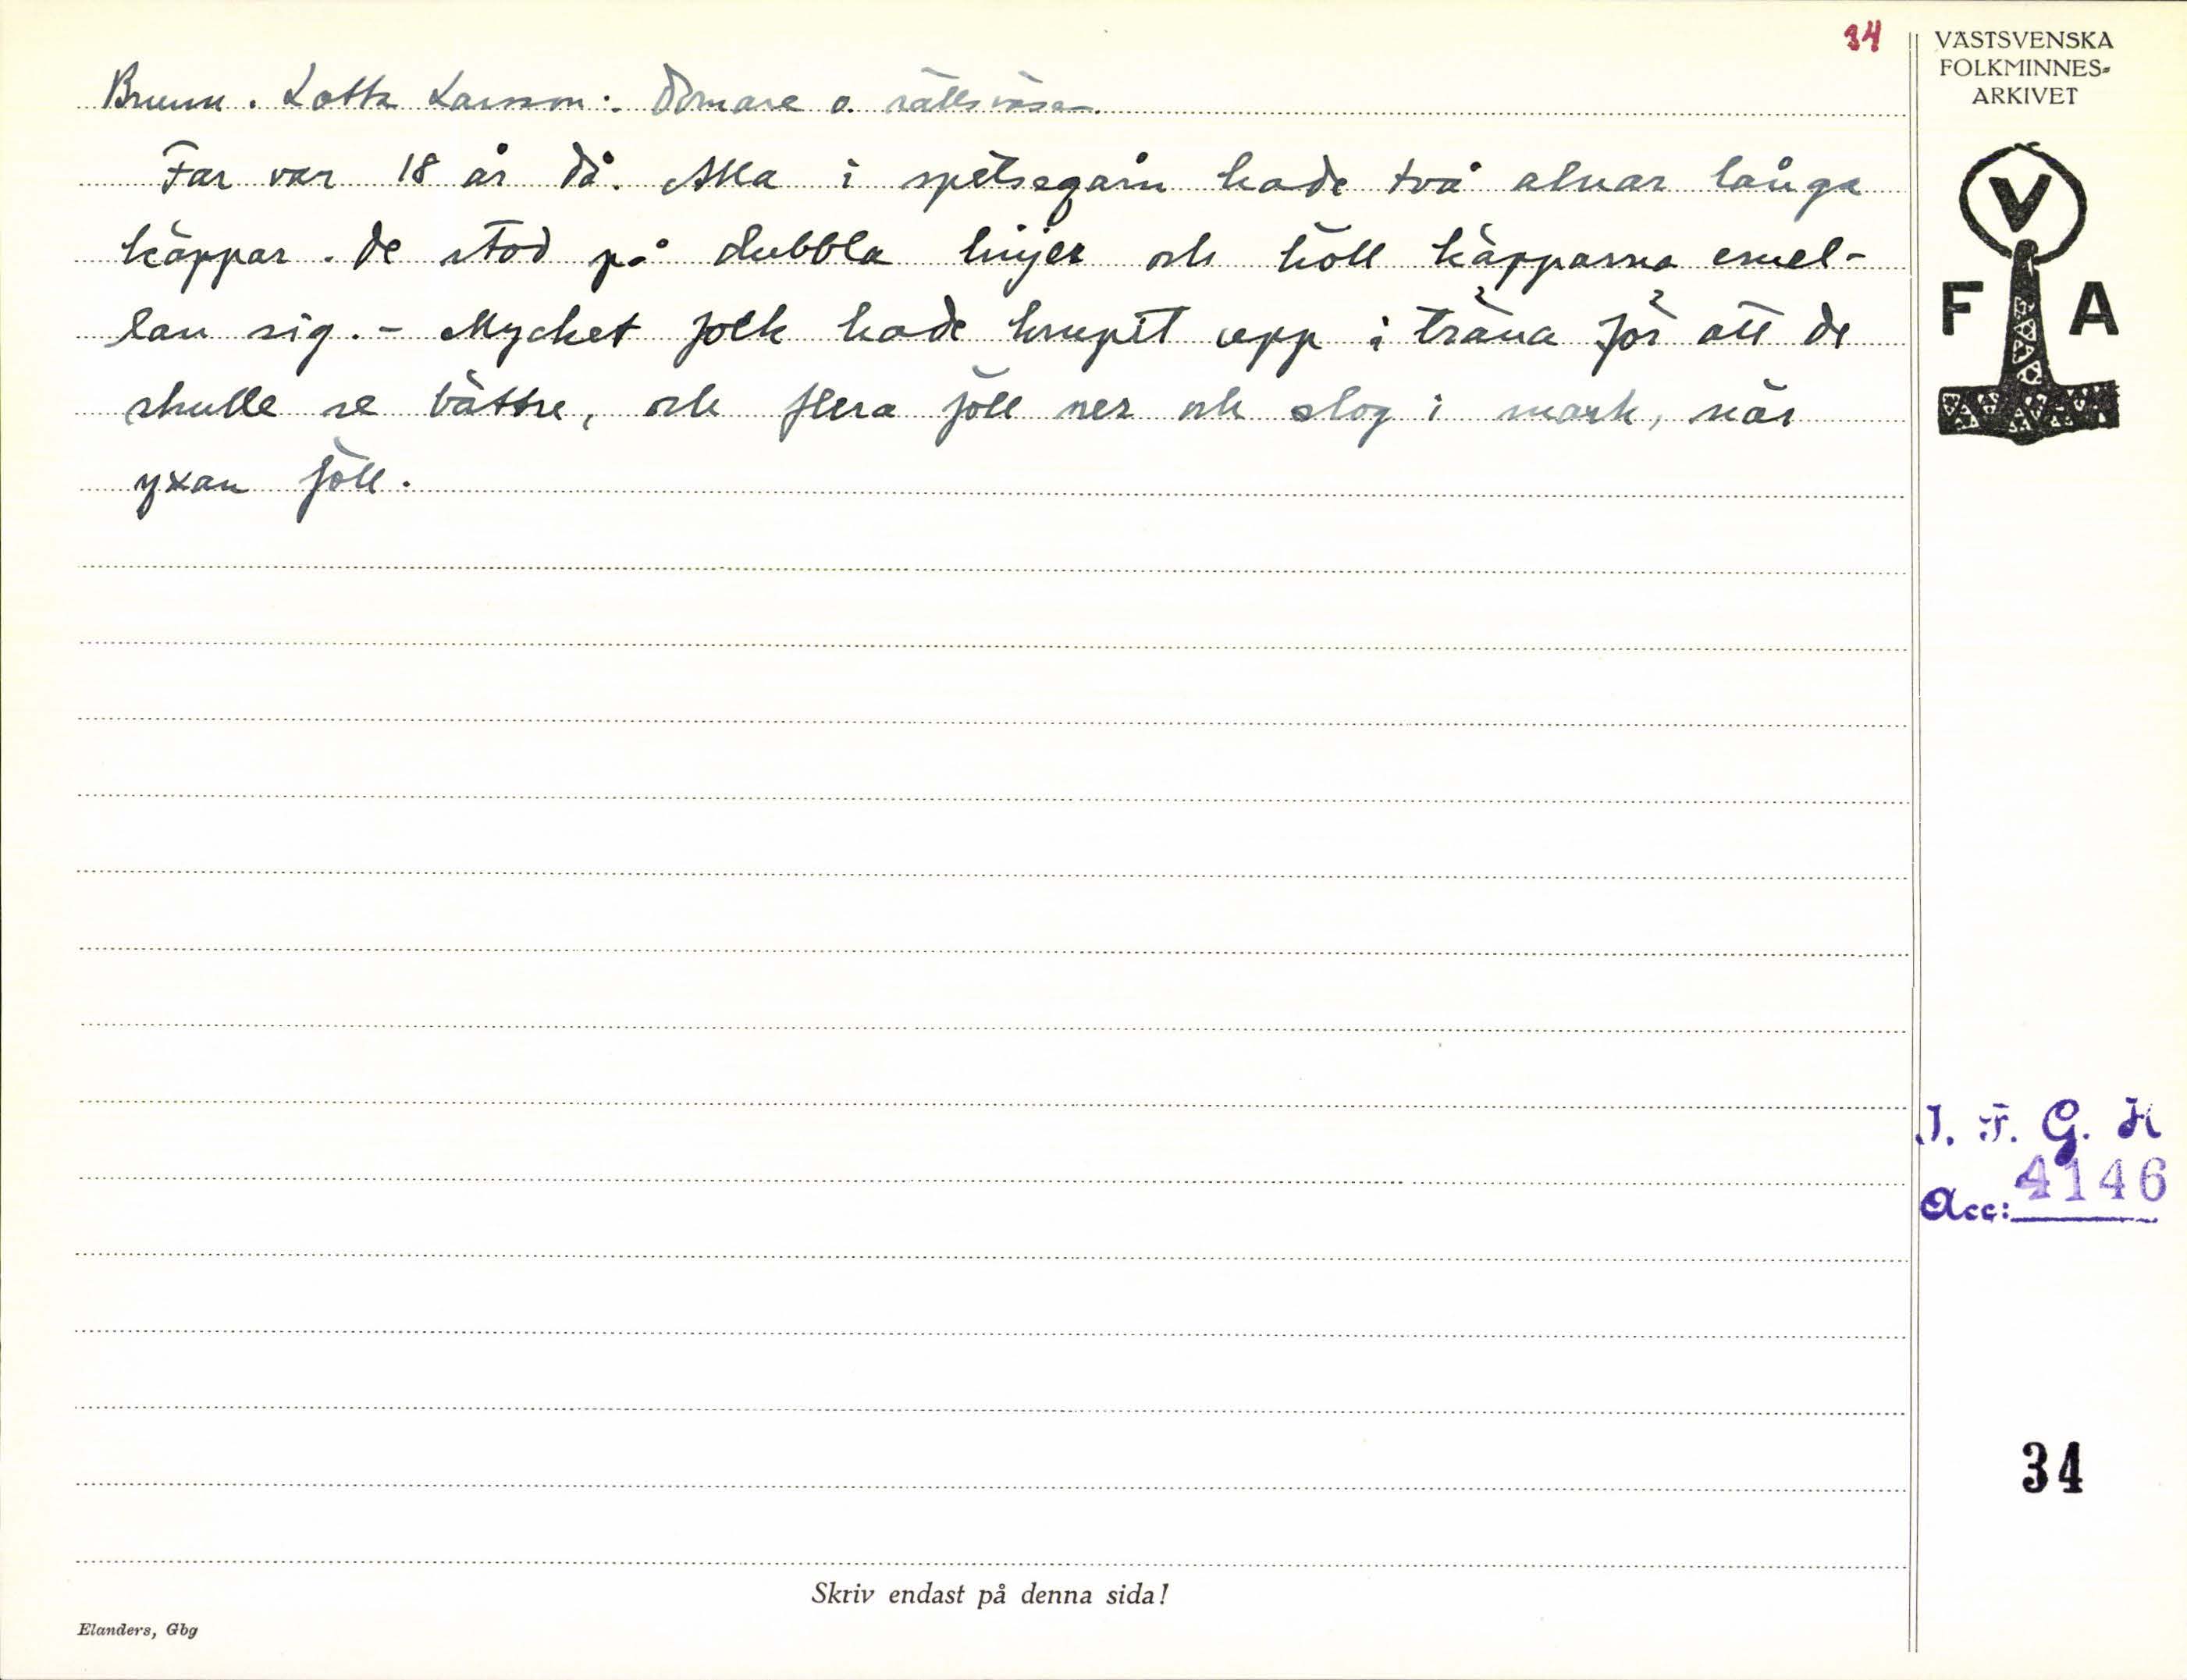 34
Brunn. Lotta Larsson: Domare o. rättsväsen.
Far var 18 år då. Alla i spetsegårn hade två alnar långa
käppar. De stod på dubbla linjer och höll käpparna emel-
lan sig. - Mycket folk hade krupit upp i träna för att de
skulle se bättre, och flera föll ner och slog i mark, når
yxan föll.
VÄSTSVENSKA
FOLKMINNES-
ARKIVET
V
F A
I. F. G. H
Acc: 4146
34
Skriv endast på denna sida!
Elanders, Gbg